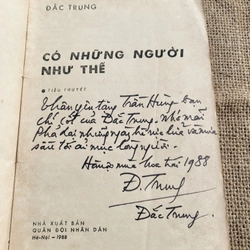 ĐẮC TRUNG
CÓ NHỮNG NGƯỜI
NHƯ THẾ
TIỂU THUYẾT
Thân yêu tặng Trần Hùng bạn
chí cốt của Đắc Trung. Nhớ mãi
Phả Lại những ngày hè rực lửa và mưa
sâu tối ải mục lòng người.
Hà nội mùa hoa 1988
Đ. Trung
Đắc Trung.
NHÀ XUẤT BẢN
QUÂN ĐỘI NHÂN DÂN
Hà-Nội — 1988